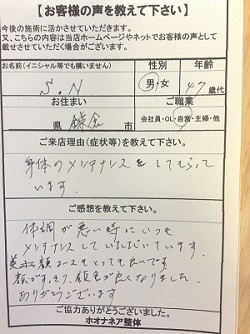 【お客様の声を教えて下さい】
今後の施術に活かさせていただきます。
又、こちらの内容は当店ホームページやネットでお客様の声として
載せさせていただく場合がございます。
お名前(イニシャル等でも構いません) 性別 年齢
S.N 男・女 47歳代
お住まい ご職業
県 鎌倉 市 会社員・OL・自営・主婦・他
ご来店理由(症状等)を教えて下さい。
身体のメンテナンスをしてもらって
います。
ご感想を教えて下さい。
体調が悪い時にいつも
メンテナンスしていただいています。
美顔コースもとても良いです。
顔がすっきり、顔色が良くなりました。
ありがとうございます
ご協力ありがとうございました。
ホオナネア整体院